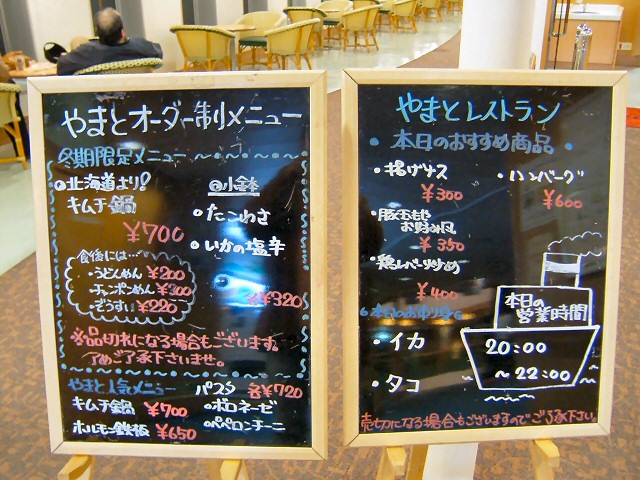 やまとオーダー制メニュー
冬期限定メニュー
●北海道より!
キムチ鍋
¥700
食後には…
・うどんめん ¥200
・チャンポンめん ¥300
・ぞうすい ¥220
◎小金本
●たこわさ
●いかの塩辛
各¥320
※品切れになる場合もございます。
予めご了承下さいませ。
やまと人気メニュー
キムチ鍋 ¥700
ホルモン鉄板 ¥650
パスタ 各¥720
●ボロネーゼ
●ペペロンチーニ
やまとレストラン
●本日のおすすめ商品●
・揚げナス
¥300
・ハンバーグ
¥600
・豚玉もや
お好み風
¥350
・鶏レバー炒め
¥400
・イカ
・タコ
本日の
営業時間
20:00
~22:00
売切になる場合もございますのでご了承下さい。